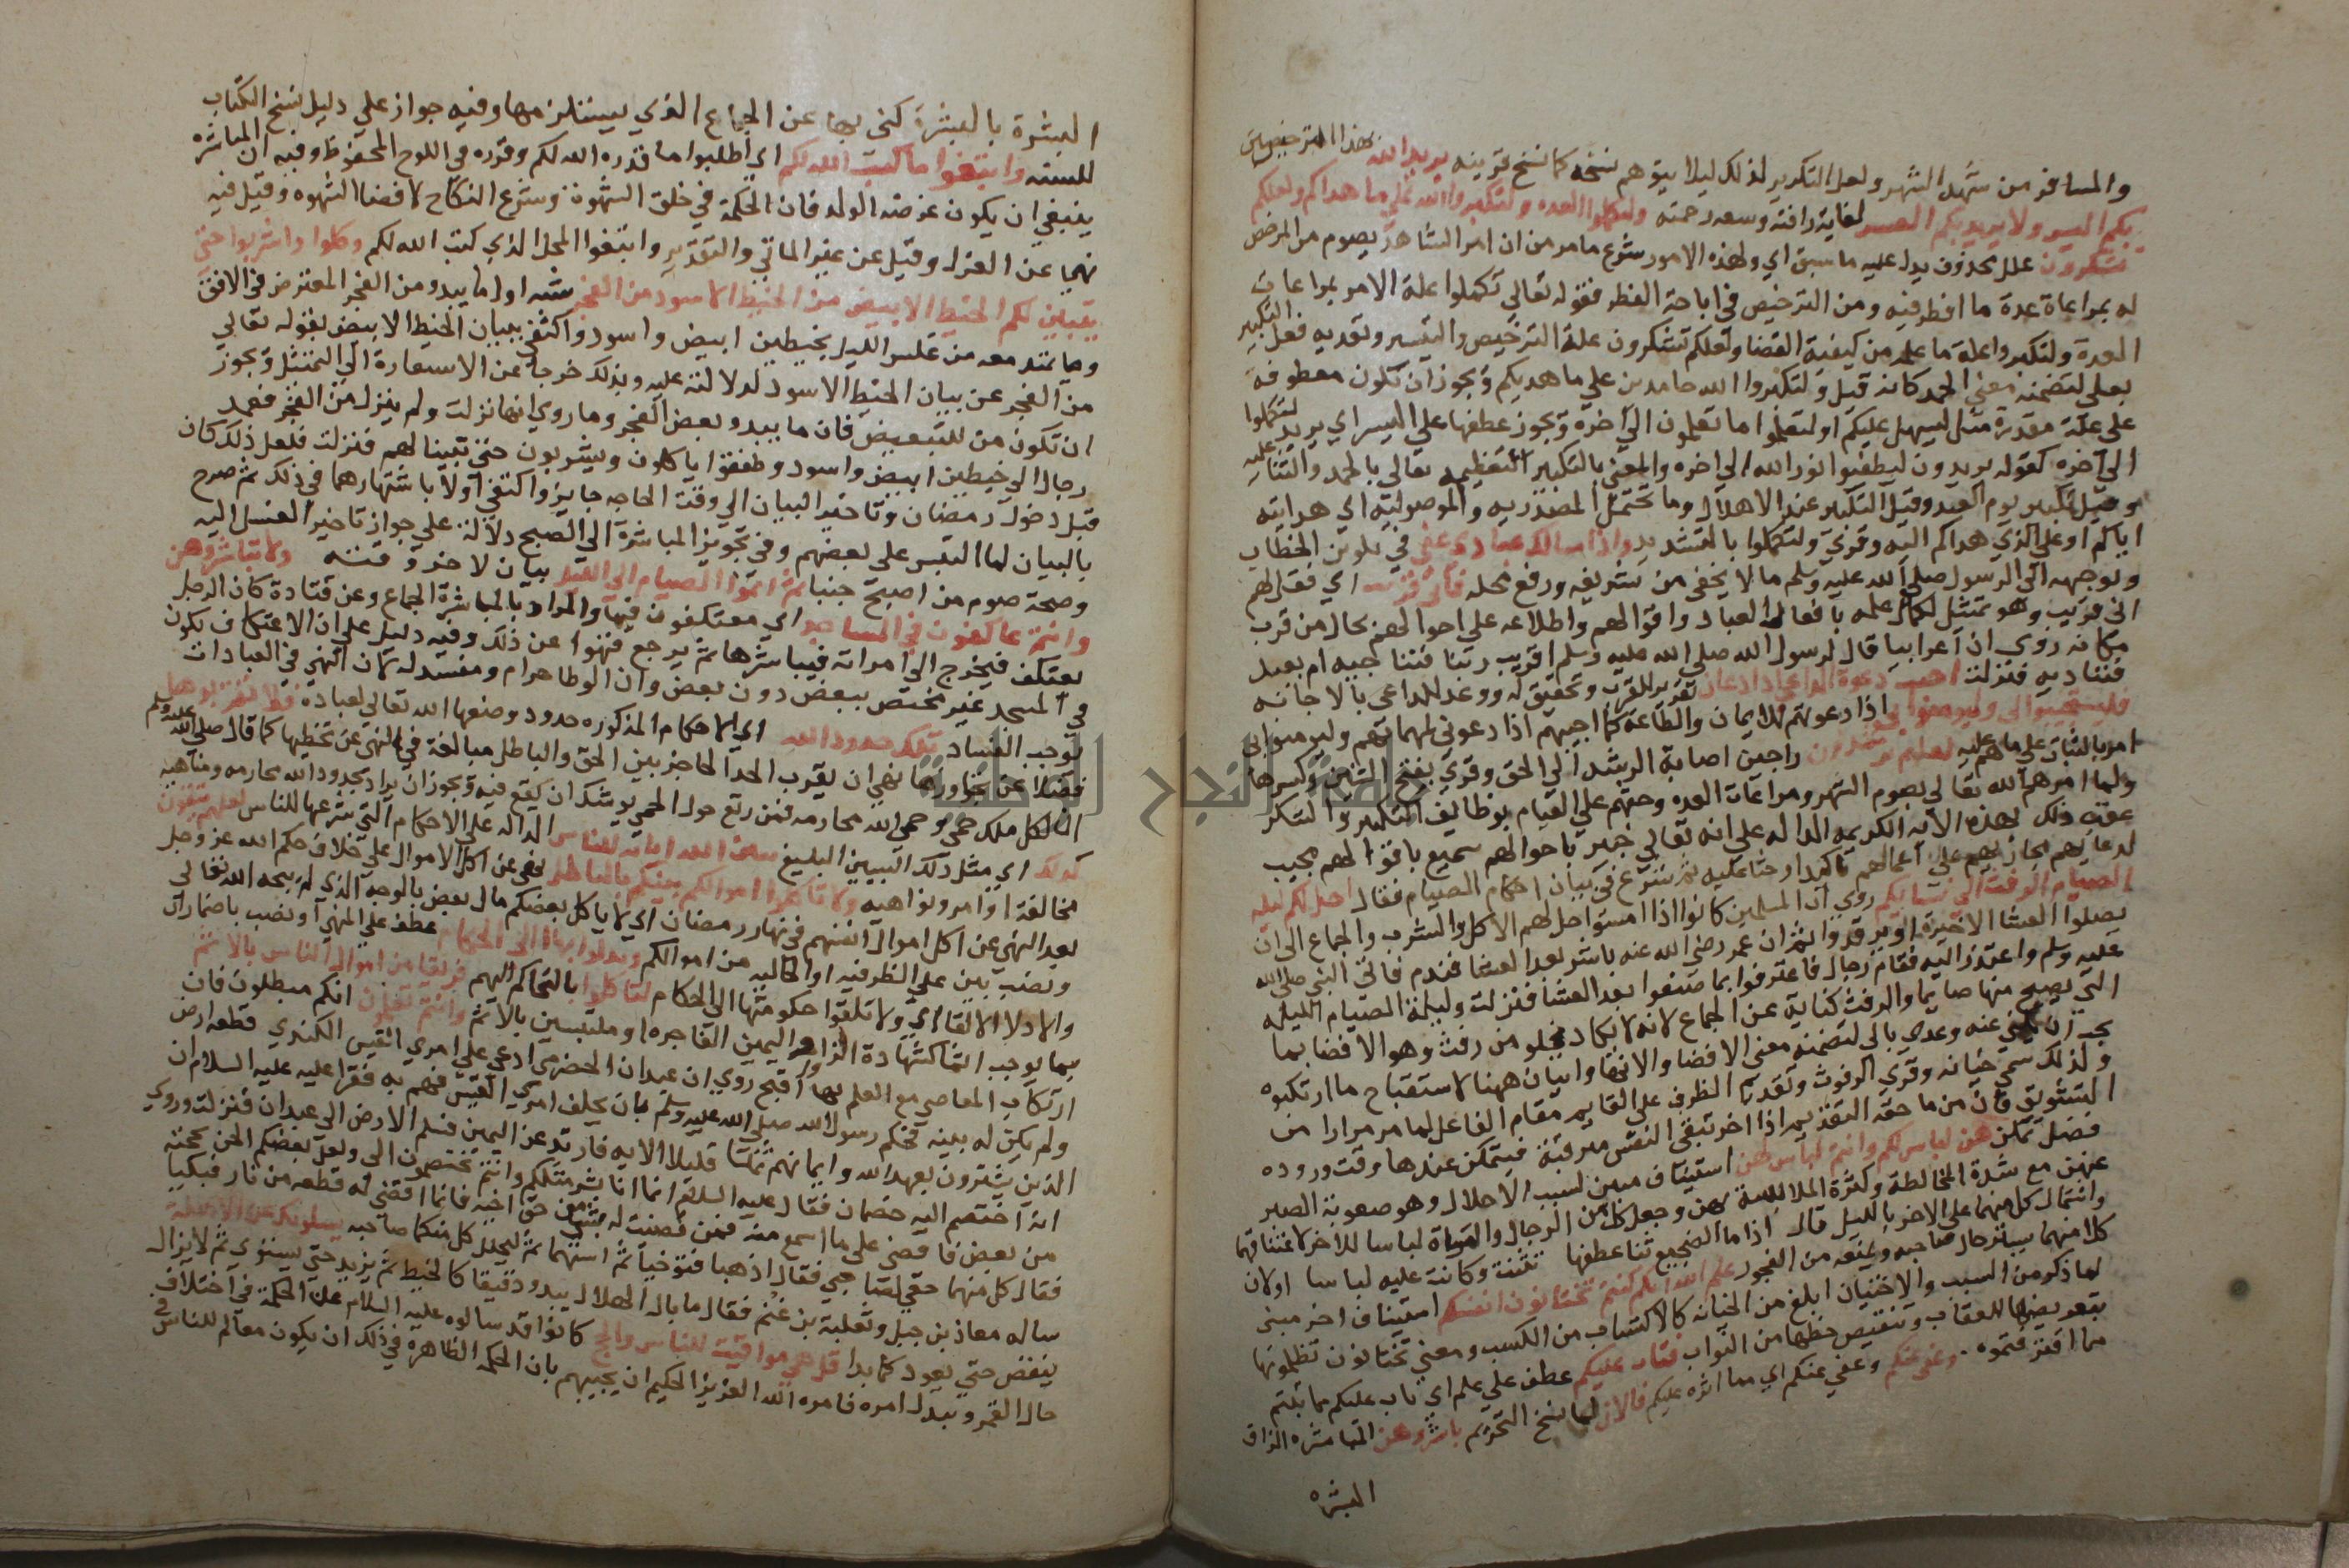 والمسافر من شهد الشهر ولعل التكرير لذلك ليلا يتوهم نسخه كما نسخ قرينه يريد الله بهذا الترخيص
بكم اليسر ولا يريد بكم العسر لغاية رافته وسعه رحمته ولتكملوا العده ولتكبروا الله على ما هداكم ولعلكم
تشكرون علل لمحذوف يدل عليه ما سبق اي ولهذه الامور شرع ما مر من ان امر الشاهد بصوم من المرخص
له بمراعاة عدة ما افطر فيه ومن الترخيص في اباحة الفطر فقوله تعالي تكملوا علة الامر بمراعات
العدة ولتكبروا علة ما علم من كيفية القضا ولعلكم تشكرون علة الترخيص والتيسير وتعديه فعل التكبير
بعلي لتضمنه معني الحمد كانه قيل ولتكبروا الله حامدين علي ما هديكم ويجوز ان تكون معطوفة
علي علة مقدرة مثل ليسهل عليكم او لتعلموا ما تعملون الي اخره ويجوز عطفها علي اليسر اي يريد لتكملوا
الي اخره كقوله يريدون ليطفيوا نور الله الي اخره والمعني بالتكبير التعظيم تعالي بالحمد والثنا عليه
وقيل تكبير يوم العيد وقيل التكبير عند الاهلال وما تحتمل المصدريه والموصوليه اي هدايته
اياكم او علي الذي هداكم اليه وقري ولتكملوا بالتشديد واذا سالك عبادي عني في تلوين الخطاب
وتوجهه الي الرسول صلي الله عليه وسلم ما لا يخفي من تشريفه ورفع محله فاني قريب اي فقل لهم
اني قريب وهو تمثيل لكمال علمه بافعال العباد واقوالهم واطلاعه علي احوالهم بحال من قرب
مكانه روي ان اعرابيا قال لرسول الله صلي الله عليه وسلم اقريب ربنا فنناجيه ام بعيد
فنناديه فنزلت اجيب دعوة الداعي اذا دعان تقرير للقرب وتحقيق له ووعد للداعي بالاجابه
فليستجيبوا لي وليومنوا بي اذا دعوتهم للايمان والطاعة كما اجيبهم اذا دعوني لمهماتهم وليومنوا بي
امر بالثبات علي ما هم عليه لعلهم يرشدون راجين اصابة الرشد الي الحق وقري بفتح الشين وكسرها
ولما امرهم الله تعالي بصوم الشهر ومراعات العده وحثهم علي القيام بوظايف التكبير والشكر
عقبه ذلك بهذه الايه الكريمه الداله علي انه تعالي خبير باحوالهم سميع باقوالهم مجيب
لدعايهم مجازيهم علي اعمالهم تاكيدا وحثا عليه ثم شرع في بيان احكام الصيام فقال احل لكم ليله
الصيام الرفث الي نسايكم روي ان المسلمين كانوا اذا امسوا حل لهم الاكل والشرب والجماع الي ان
يصلوا العشا الاخيرة او يرقدوا ثم ان عمر رضي الله عنه باشر بعد العشا فندم فاتي النبي صلي الله
عليه وسلم واعتذر اليه فقام رجال فاعترفوا بما صنعوا بعد العشا فنزلت وليلة الصيام الليله
التي يصبح منها صايما والرفث كناية عن الجماع لانه لا يكاد يخلو من رفث وهو الافضا بما
يجب ان يكني عنه وعدي بالي لتضمنه معني الافضا والانها وايثاره ههنا لاستقباح ما ارتكبوه
ولذلك سمي خيانه وقري الرفوث وتقديم الظرف علي القايم مقام الفاعل لما مر مرارا من
التشويق فان من ما حقه التقديم اذا اخر تبقي النفس مترقبة فيتمكن عندها وقت وروده
فضل تمكن هن لباس لكم وانتم لباس لهن استيناف مبين لسبب الاحلال وهو صعوبة الصبر
عنهن مع شدة المخالطة وكثرة الملابسة بهن وجعل كل من الرجال والمراة لباسا للاخر لاعتناقهما
واشتمال كل منهما علي الاخر بالليل قال اذا ما الضجيع ثنا عطفها تثنت وكانت عليه لباسا اولان
كلا منهما يستر حال صاحبه ويمنعه من الفجور علم الله انكم كنتم تختانون انفسكم استيناف اخر مبني
لما ذكر من السبب والاختيان ابلغ من الخيانه كالاكتساب من الكسب ومعني تختانون تظلمونها
بتعريضها للعقاب وتنقيص حظها من الثواب فتاب عليكم عطف علي علم اي تاب عليكم مما تبتم
مما اقترفتموه وعفي عنكم وعفي عنكم اي محا اثره عليكم فالان لما نسخ التحريم باشروهن المباشره الزاق
البشره
البشرة بالبشرة كني بها عن الجماع الذي يستلزمها وفيه جواز علي دليل نسخ الكتاب
للسنه وابتغوا ما كتب الله لكم اي اطلبوا ما قدره الله لكم وقرره في اللوح المحفوظ وفيه ان المباشره
ينبغي ان يكون غرضه الولد فان الحكمة في خلق الشهوة وشرع النكاح لا قضا الشهوه وقيل فيه
نهي عن العزل وقيل عن غير الماتي والتقدير وابتغوا المحل الذي كتب الله لكم وكلوا واشربوا حتي
يتبين لكم الخيط الابيض من الخيط الاسود من الفجر شبه اول ما يبدو من الفجر المعترض في الافق
وما يمتد معه من غلس الليل بخيطين ابيض واسود واكتفي ببيان الخيط الابيض بقوله تعالي
من الفجر عن بيان الخيط الاسود لدلالته عليه وبذلك خرجا عن الاستعارة الي التمثيل ويجوز
ان تكون من للتبعيض فان ما يبدو بعض الفجر وما روي انها نزلت ولم ينزل من الفجر فعمد
رجال الي خيطين ابيض واسود وطفقوا ياكلون ويشربون حتي تبينا لهم فنزلت فلعل ذلك كان
قبل دخول رمضان وتاخير البيان الي وقت الحاجه جايز واكتفي اولا باشتهارهما في ذلك ثم صرح
بالبيان لما التبس علي بعضهم وفي تجويز المباشرة الي الصبح دلالة علي جواز تاخير الغسل اليه
وصحة صوم من اصبح جنبا ثم اتموا الصيام الي الليل بيان لاخر وقته ولا تباشروهن
وانتم عاكفون في المساجد اي معتكفون فيها والمراد بالمباشرة الجماع وعن قتادة كان الرجل
يعتكف فيخرج الي امراته فيباشرها ثم يرجع فنهوا عن ذلك وفيه دليل علي ان الاعتكاف يكون
في المسجد غير مختص ببعض دون بعض وان الوطا حرام ومفسد له لان النهي في العبادات
يوجب الفساد تلك حدود الله اي الاحكام المذكوره حدود وضعها الله تعالي لعباده فلا تقربوها
فضلا عن تجاوزها نهي ان يقرب الحد الحاجز بين الحق والباطل مبالغة في النهي عن تخطيها كما قال صلي الله عليه وسلم
ان لكل ملك حمي وحمي الله محارمه فمن رتع حول الحمي يوشك ان يقع فيه ويجوز ان يراد بحدود الله محارمه ومناهيه
كذلك اي مثل ذلك التبيين البليغ يبين الله اياته للناس الداله علي الاحكام التي شرعها للناس لعلهم يتقون
مخالفة اوامره ونواهيه ولا تاكلوا اموالكم بينكم بالباطل نهي عن اكل الاموال علي خلاف حكم الله عز وجل
بعد النهي عن اكل اموال انفسهم في نهار رمضان اي لا ياكل بعضكم مال بعض بالوجه الذي لم يبحه الله تعالي
ونصب بين علي الظرفيه او الحاليه من اموالكم وتدلوا بها الي الحكام عطف علي المنهي او نصب باضمار ان
والادلا الالقا اي ولا تلقوا حكومتها الي الحكام لتاكلوا بالتحاكم اليهم فريقا من اموال الناس بالاثم
بما يوجب اثما كشهادة الزور واليمين الفاجره او ملتبسين بالاثم وانتم تعلمون انكم مبطلون فان
ارتكاب المعاصي مع العلم بها اقبح روي ان عبدان الحضرمي ادعي علي امري القيس الكندي قطعه ارض
ولم يكن له بينه فحكم رسول الله صلي الله عليه وسلم بان يحلف امري القيس فهم به فقرا عليه عليه السلام ان
الذين يشترون بعهد الله وايمانهم ثمنا قليلا الايه فارتدع عن اليمين فسلم الارض الي عبدان فنزلت وروي
انه اختصم اليه خصمان فقال عليه السلام انما انا بشر مثلكم وانتم تختصمون الي ولعل بعضكم الحن بحجته
من بعض فاقضي علي ما اسمع منه فمن قضيت له بشي من حق اخيه فانما اقضي له قطعه من نار فبكيا
فقال كل منهما حقي لصاحبي فقال اذهبا فتوخيا ثم استهما ثم ليحلل كل منكما صاحبه يسلونك عن الاهلة
ساله معاذ بن جبل وثعلبة بن غنم فقال ما بال الهلال يبدو دقيقا كالخيط ثم يزيد حتي يستوي ثم لا يزال
ينقص حتي يعود كما بدا قل هي مواقيت للناس والحج كانوا قد سالوه عليه السلام عن الحكمة في اختلاف
حال القمر وتبدل امره فامره الله العزيز الحكيم ان يجيبهم بان الحكمة الظاهرة في ذلك ان يكون معالم للناس في